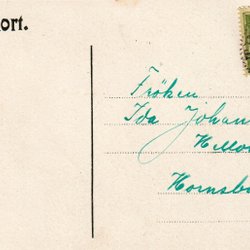 ort.
Fröken
Ida Johan
Hornsb